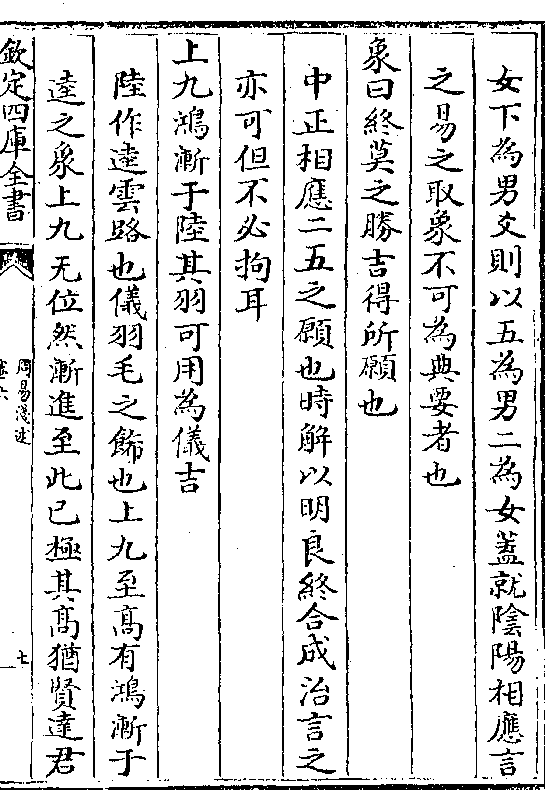 女下為男爻則以五為男二為女蓋就陰陽相應言
之易之取象不可為典要者也
象曰終莫之勝吉得所願也
中正相應二五之願也時解以明良終合成治言之
亦可但不必拘耳
上九鴻漸于陸其羽可用為儀吉
陸作逵雲路也儀羽毛之飾也上九至髙有鴻漸于
逵之象上九无位然漸進至此已極其髙猶賢達君
欽定四庫全書
周易淺述
卷六
七